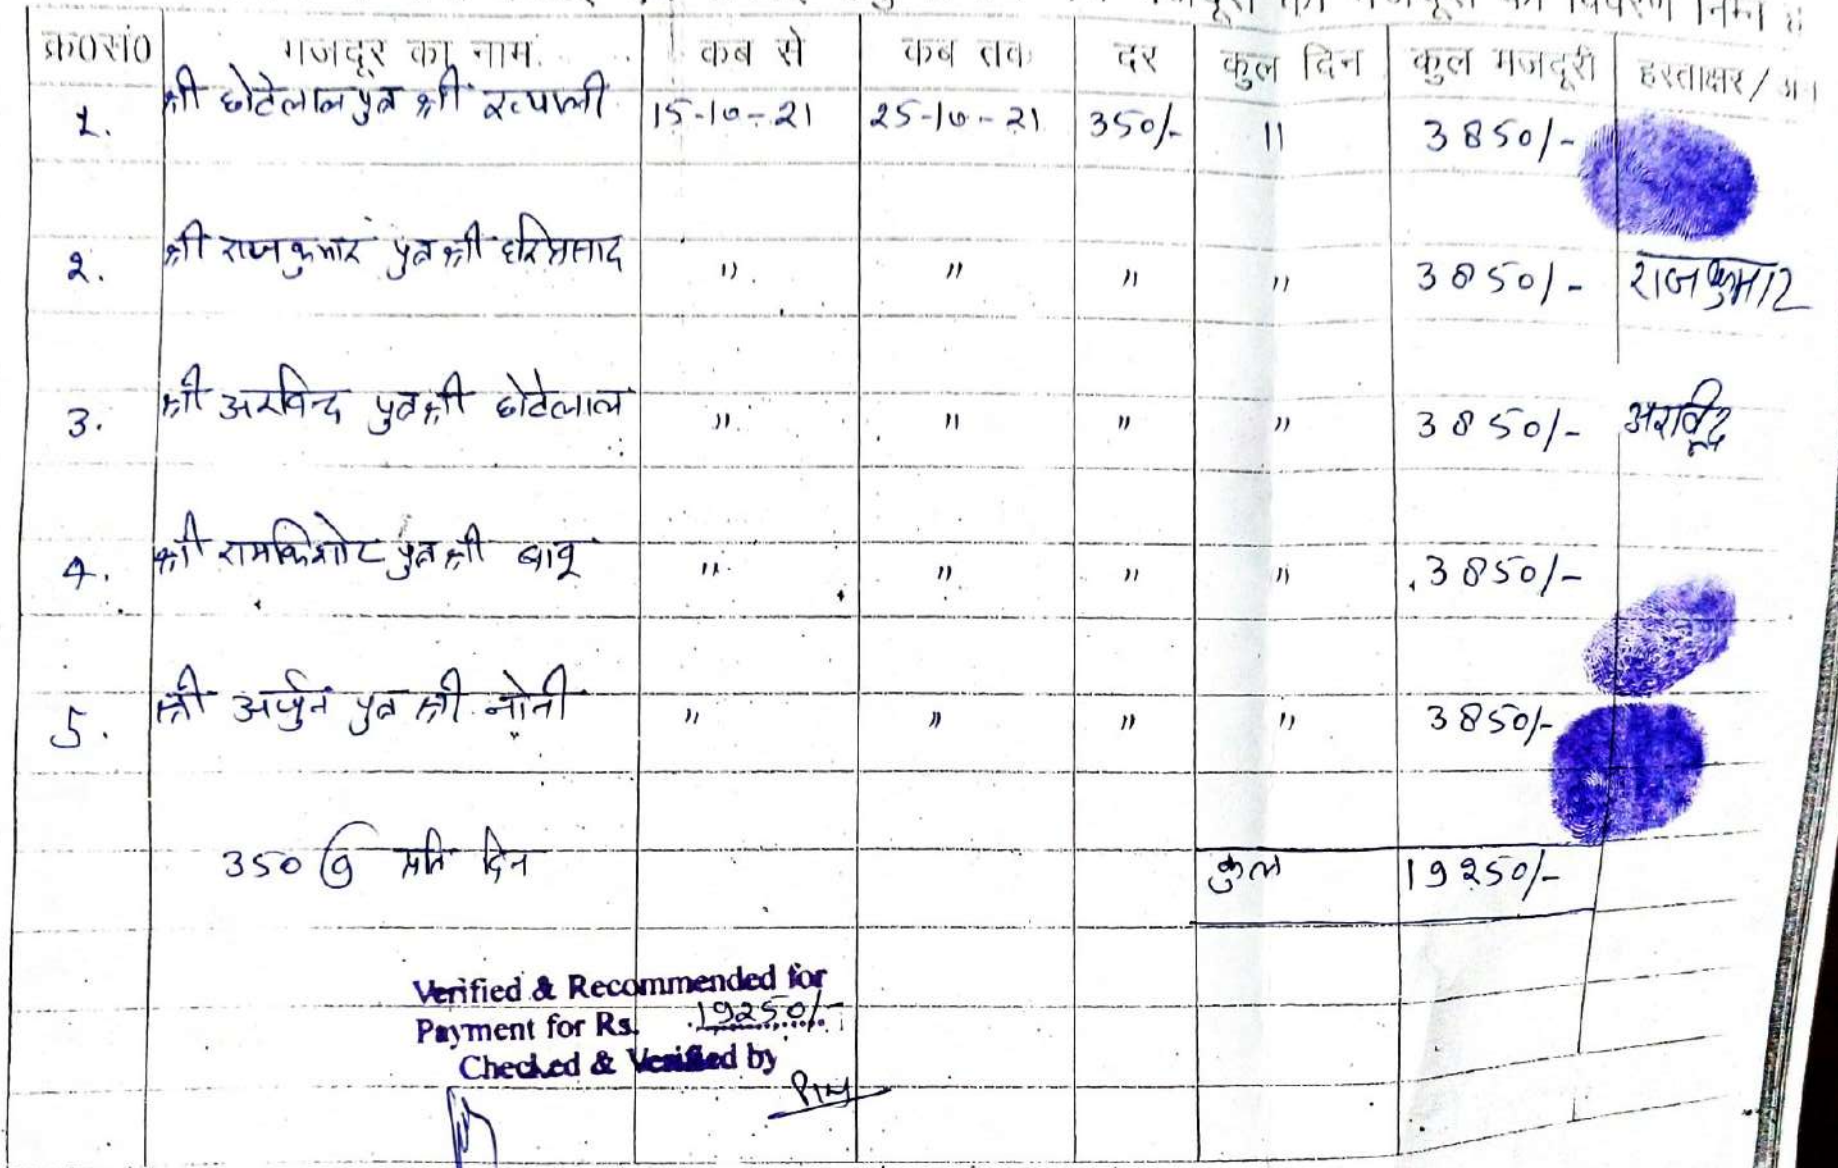 मजदूरी का विवरण निम्न है
क्र०सं० मजदूर का नाम कब से कब तक दर कुल दिन कुल मजदूरी हस्ताक्षर /
1. श्री छोटेलाल पुत्र श्री 15-10-21 25-10-21 350/- 11 3850/-
2. श्री राजकुमार पुत्र श्री हरिप्रसाद " " " " 3850/- राजकुमार
3. श्री अरविन्द पुत्र श्री छोटेलाल " " " " 3850/- अरविंद
4. श्री रामकिशोर पुत्र श्री बाबू " " " " 3850/-
5. श्री अर्जुन पुत्र श्री नोनी " " " " 3850/-
350 प्रति दिन कुल 19250/-
Verified & Recommended for
Payment for Rs. 19250/-
Checked & Verified by